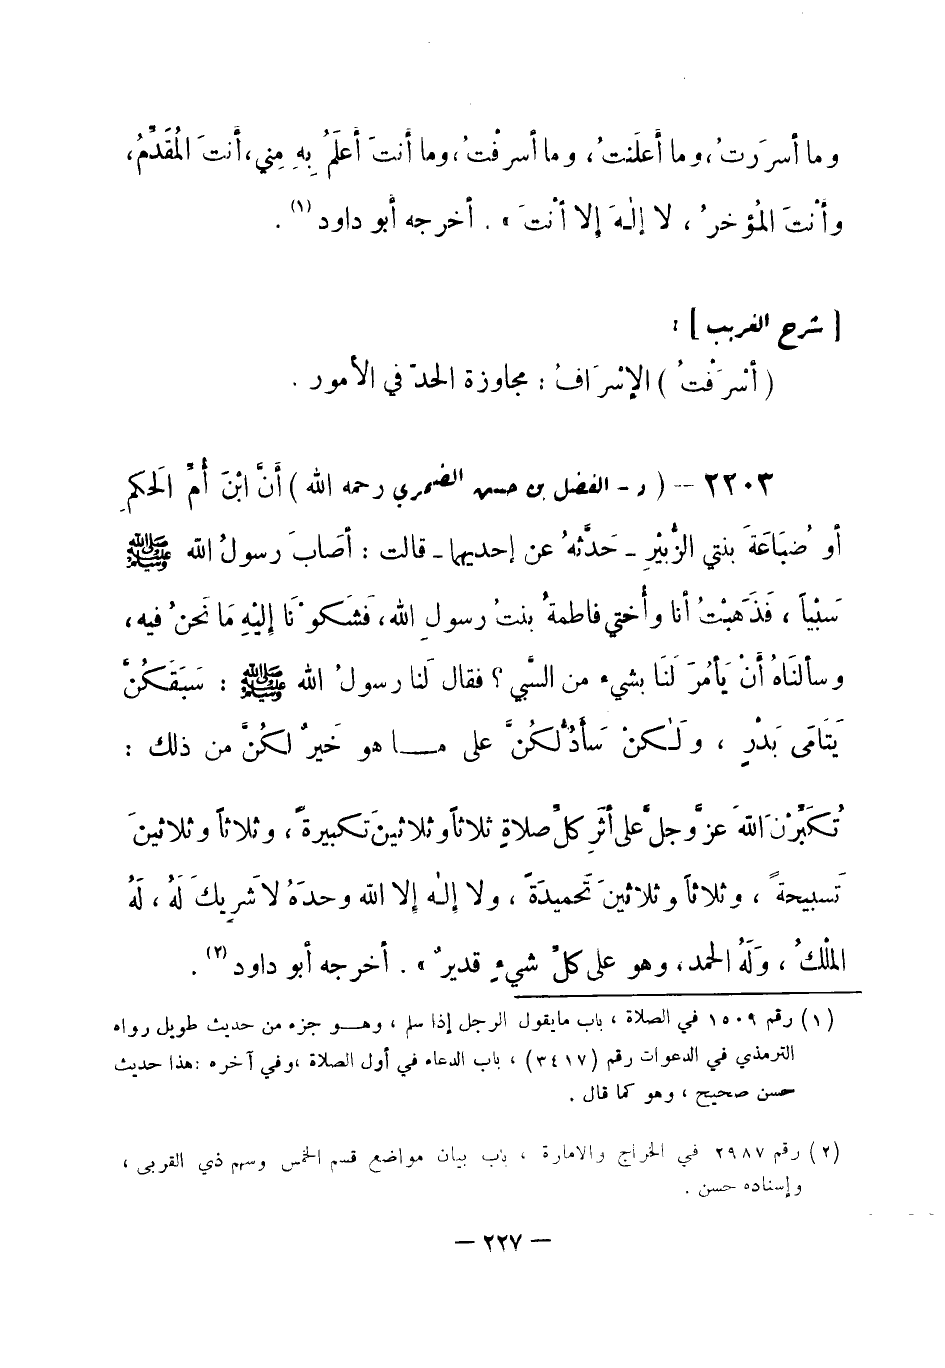 وما أسرَرتُ، وما أعلَنتُ، وما أسرفْتُ، وما أنتَ أعلَمُ بِهِ مِني، أنتَ المُقَدِّمُ،
وأنْتَ المُؤخرُ، لا إلٰهَ إلا أنتَ» . أخرجه أبو داود (١) .
[ شرح الغريب ] :
( أسْرَفْتُ ) الإسْرَافُ : مجاوزة الحدّ في الأمور .
٢٢٠٣ — ( د - الفضل بن حسن الضمري رحمه الله ) أنَّ ابْنَ أُمِّ الحَكمِ
أو ضُبَاعَةَ بنتي الزُّبَيْرِ - حَدَّثهُ عن إحديهما - قالت : أصَابَ رسولُ الله ﷺ
سَبْياً ، فَذَهَبْتُ أنا وأُختي فاطمةُ بنتُ رسولِ الله، فَشَكوْنَا إلَيْهِ مَا نَحنُ فيه،
وسألنَاهُ أنْ يَأمُرَ لَنَا بشيء من السَّبي ؟ فقال لَنا رسولُ الله ﷺ : سَبَقَكُنَّ
يَتَامَى بَدْرٍ ، ولَٰكنْ سَأدُلُّكُنَّ على مــا هو خَيرٌ لكُنَّ من ذلك :
تُكَبِّرْنَ اللهَ عزَّ وجلَّ على أثَرِ كلِّ صلاةٍ ثلاثاً وثلاثينَ تكبيرةً ، وثلاثاً وثلاثينَ
تَسبيحةً ، وثلاثاً وثلاثينَ تحميدَةً ، ولا إلٰه إلا الله وحدَهُ لا شريكَ لَهُ ، لَهُ
المُلْكُ ، ولَهُ الحمد، وهو على كلِّ شيءٍ قديرٌ » . أخرجه أبو داود (٢) .
(١) رقم ١٥٠٩ في الصلاة ، باب مايقول الرجل إذا سلم ، وهــو جزء من حديث طويل رواه
الترمذي في الدعوات رقم (٣٤١٧) ، باب الدعاء في أول الصلاة ،وفي آخره :هذا حديث
حسن صحيح ، وهو كما قال .
(٢) رقم ٢٩٨٧ في الخراج والامارة ، باب بيان مواضع قسم الخمس وسهم ذي القربى ،
وإسناده حسن .
— ٢٢٧ —